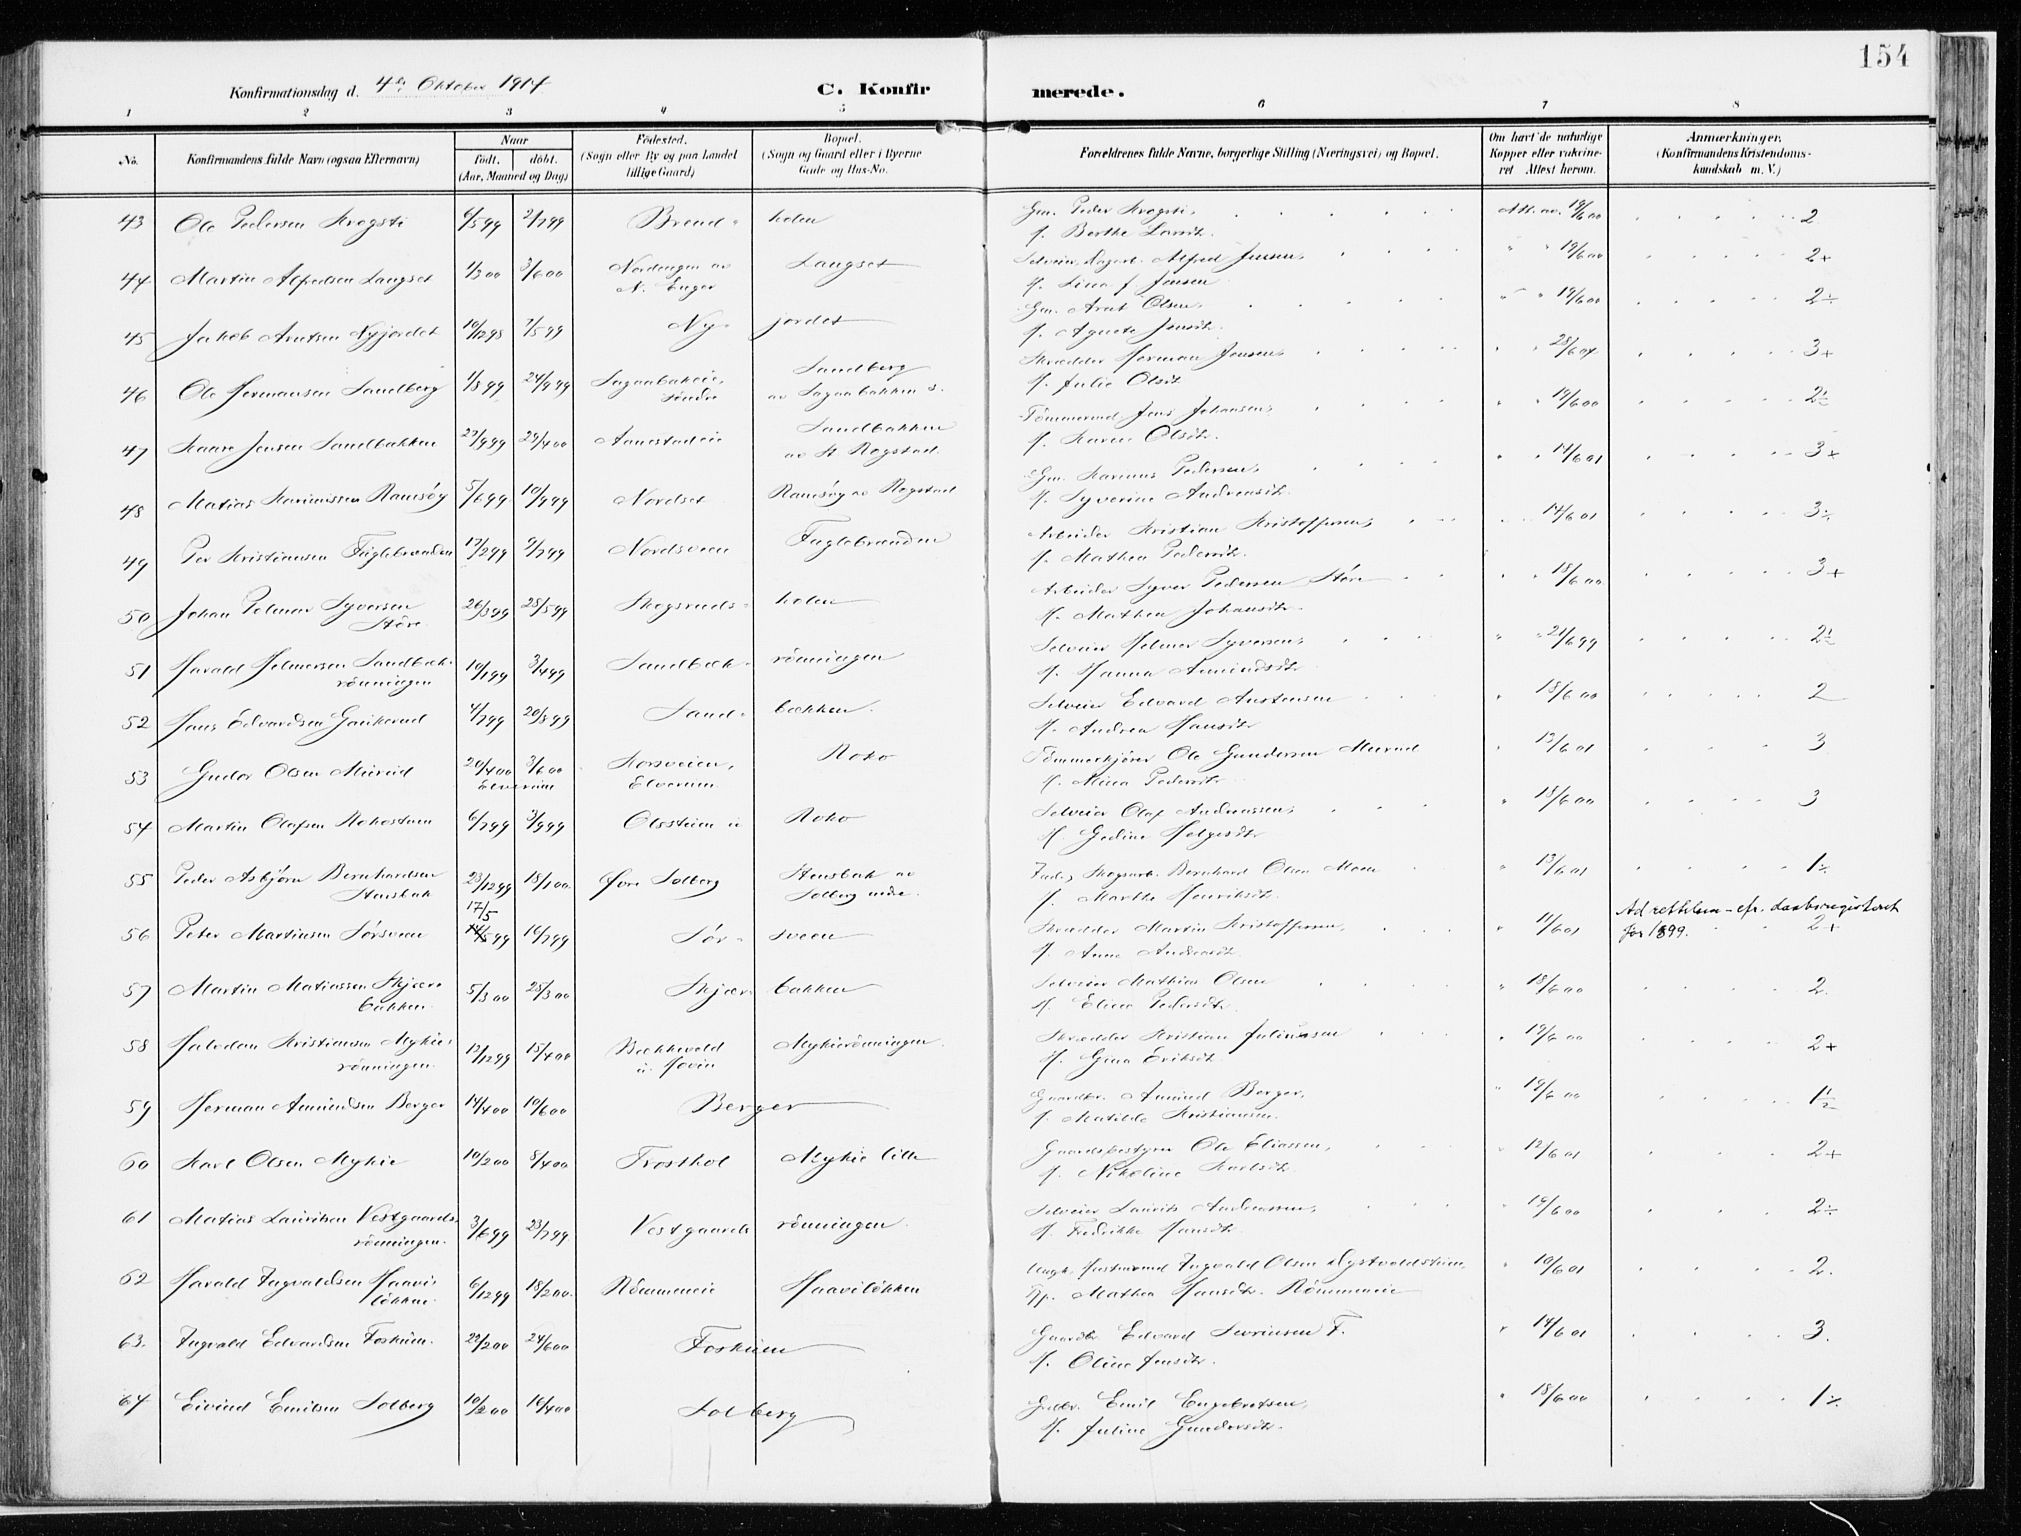 154
Konfirmationsdag d. 4de Oktober 1914 C. Konfir merede.
1 2 3 4 5 6 7 8
No. Konfirmandens fulde Navn (ogsaa Efternavn) Naar født, døbt. (Aar, Maaned og Dag) Födested. (Sogn eller By og paa Landet tillige Gaard) Bopæl. (Sogn og Gaard eller i Byerne Gade og Hus-No. Forældrenes fulde Navne, borgerlige Stilling (Næringsvei) og Bopæl. Om havt de naturlige Kopper eller vakcineret Attest herom. Anmærkninger. (Konfirmandens Kristendomskundskab m. V.)
43 Ole Pedersen Krogsti 6/5 99 2/7 99 Brend- holen Gm. Peder Krogsti, Att. av. 19/6 00 2
f. Berthe Larsdt.
44 Martin Alfredsen Langset 1/3 00 3/6 00 Nordengen av Langset Selveier, Dagarb. Alfred Jensen, " " 19/6 00 2+
N. Enger f. Lina f. Jensen
45 Jakob Arntsen Nyjordet 10/12 98 7/5 99 Ny- jordet Gm. Arnt Olsen, " " 19/6 00 2÷
f. Agnete Jensdt.
46 Ole Hermansen Sandberg 1/8 99 24/9 99 Sagaabakeie, Sandberg Skrædder Herman Jensen, " " 28/6 04 3+
søndre av Sagaabakken s. f. Julie Olsdt.
47 Kaare Jensen Sandbakken 27/9 99 29/4 00 Aanestadeie Sandbakken Tömmermd Jens Johansen, " " 19/6 00 2÷
av St Rogstad f. Karen Olsdt.
48 Matias Karinussen Ramsøy 5/6 99 10/9 99 Nordset Ramsøy av Rogstad Gm. Karinus Pedersen, " " 14/6 01 3+
f. Syverine Andreasdt.
49 Per Kristiansen Fuglebrænden 17/2 99 2/7 99 Nordsveen Fuglebrænden Arbeider Kristian Kristoffersen, 14/6 01 3÷
f. Mathea Pedersdt.
50 Johan Pelmer Syversen 26/3 99 28/5 99 Skogsruds- holen Arbeider Syver Pedersen Støre " " 18/6 00 3+
Støre f. Mathea Johansdt.
51 Harald Helmersen Sandbæk- 10/1 99 3/4 99 Sandbæk- rönningen Selveier Helmer Syversen, " " 21/6 99 2÷
rönningen f. Hanna Amundsdt.
52 Hans Edvardsen Gaukerud 4/7 99 20/8 99 Sand- bækken. Selveier Edvard Austensen " 18/6 00 2
f. Andrea Hansdt.
53 Gudor Olsen Murud 20/4 00 3/6 00 Korsveien, Roko Tömmerkjører Ole Gundersen Murud " 13/6 01 3
Elverum Elverum f. Mina Pedersdt.
54 Martin Olafsen Rokosteen 6/7 99 3/9 99 Olssteien u Roko Selveier Olaf Andreassen, " 18/6 00 3
f. Gedine Helgesdt.
55 Peder Asbjørn Bernhardsen 23/12 99 18/1 00 Øvre Solberg Stensbak av Inds. Skogsarb. Bernhard Olsen Moen " 13/6 01 1÷
Stensbak Solberg nedre f. Marthe Henriksdt.
56 Peter Martinsen Sørsveen 17/5 99 16/7 99 Sør- sveen Skrædder Martin Kristoffersen, " 11/6 01 Ad rettelsen - cfr. daabsregisteret for 1899. 2+
f. Anne Andreasdt.
57 Martin Matiassen Skjær- 5/3 00 28/3 00 Skjær- bakken Selveier Mathias Olsen " 18/6 00 2.
bakken. f. Eline Pedersdt.
58 Halvdan Kristiansen Mykie- 12/12 99 15/4 00 Bækkevold Mykierönningen. Skrædder Kristian Juliussen " 19/6 00 2+
rönningen. u. Hovin f. Gina Eriksdt.
59 Herman Amundsen Berger 14/4 00 10/6 00 Berger Gaardbr. Amund Berger, " 19/6 00 1½
f. Matilde Kristiansen.
60 Karl Olsen Mykie 10/2 00 8/4 00 Frosthol Mykie lille Gaardsbestyrer Ole Eliassen, " 12/6 01 2+
f. Nikoline Karlsdt.
61 Matias Lauritsen Vestgaards- 3/6 99 23/7 99 Vestgaards rönningen. Selveier Laurits Andreassen, " 19/6 00 2÷
rönningen. f. Fredrikke Hansdt.
62 Harald Ingvaldsen Haavi- 6/12 99 18/2 00 Römmeneie Haaviløkken Ungk. Hustømmermd Ingvald Olsen Dystvoldsteien, " 10/6 01 2.
løkken. Pg. Mathea Hansdt. Römmeneie
63. Ingvald Edvardsen Foskum. 22/2 00 24/6 00 Foskum Gaardbr Edvard Sørensen F. " 14/6 01 3.
f. Oline Jensdt.
64 Eivind Emilsen Solberg 10/2 00 16/4 00 Solberg Gaardbr. Emil Engebretsen, " 18/6 00 1÷
f. Juline Gundersdt.